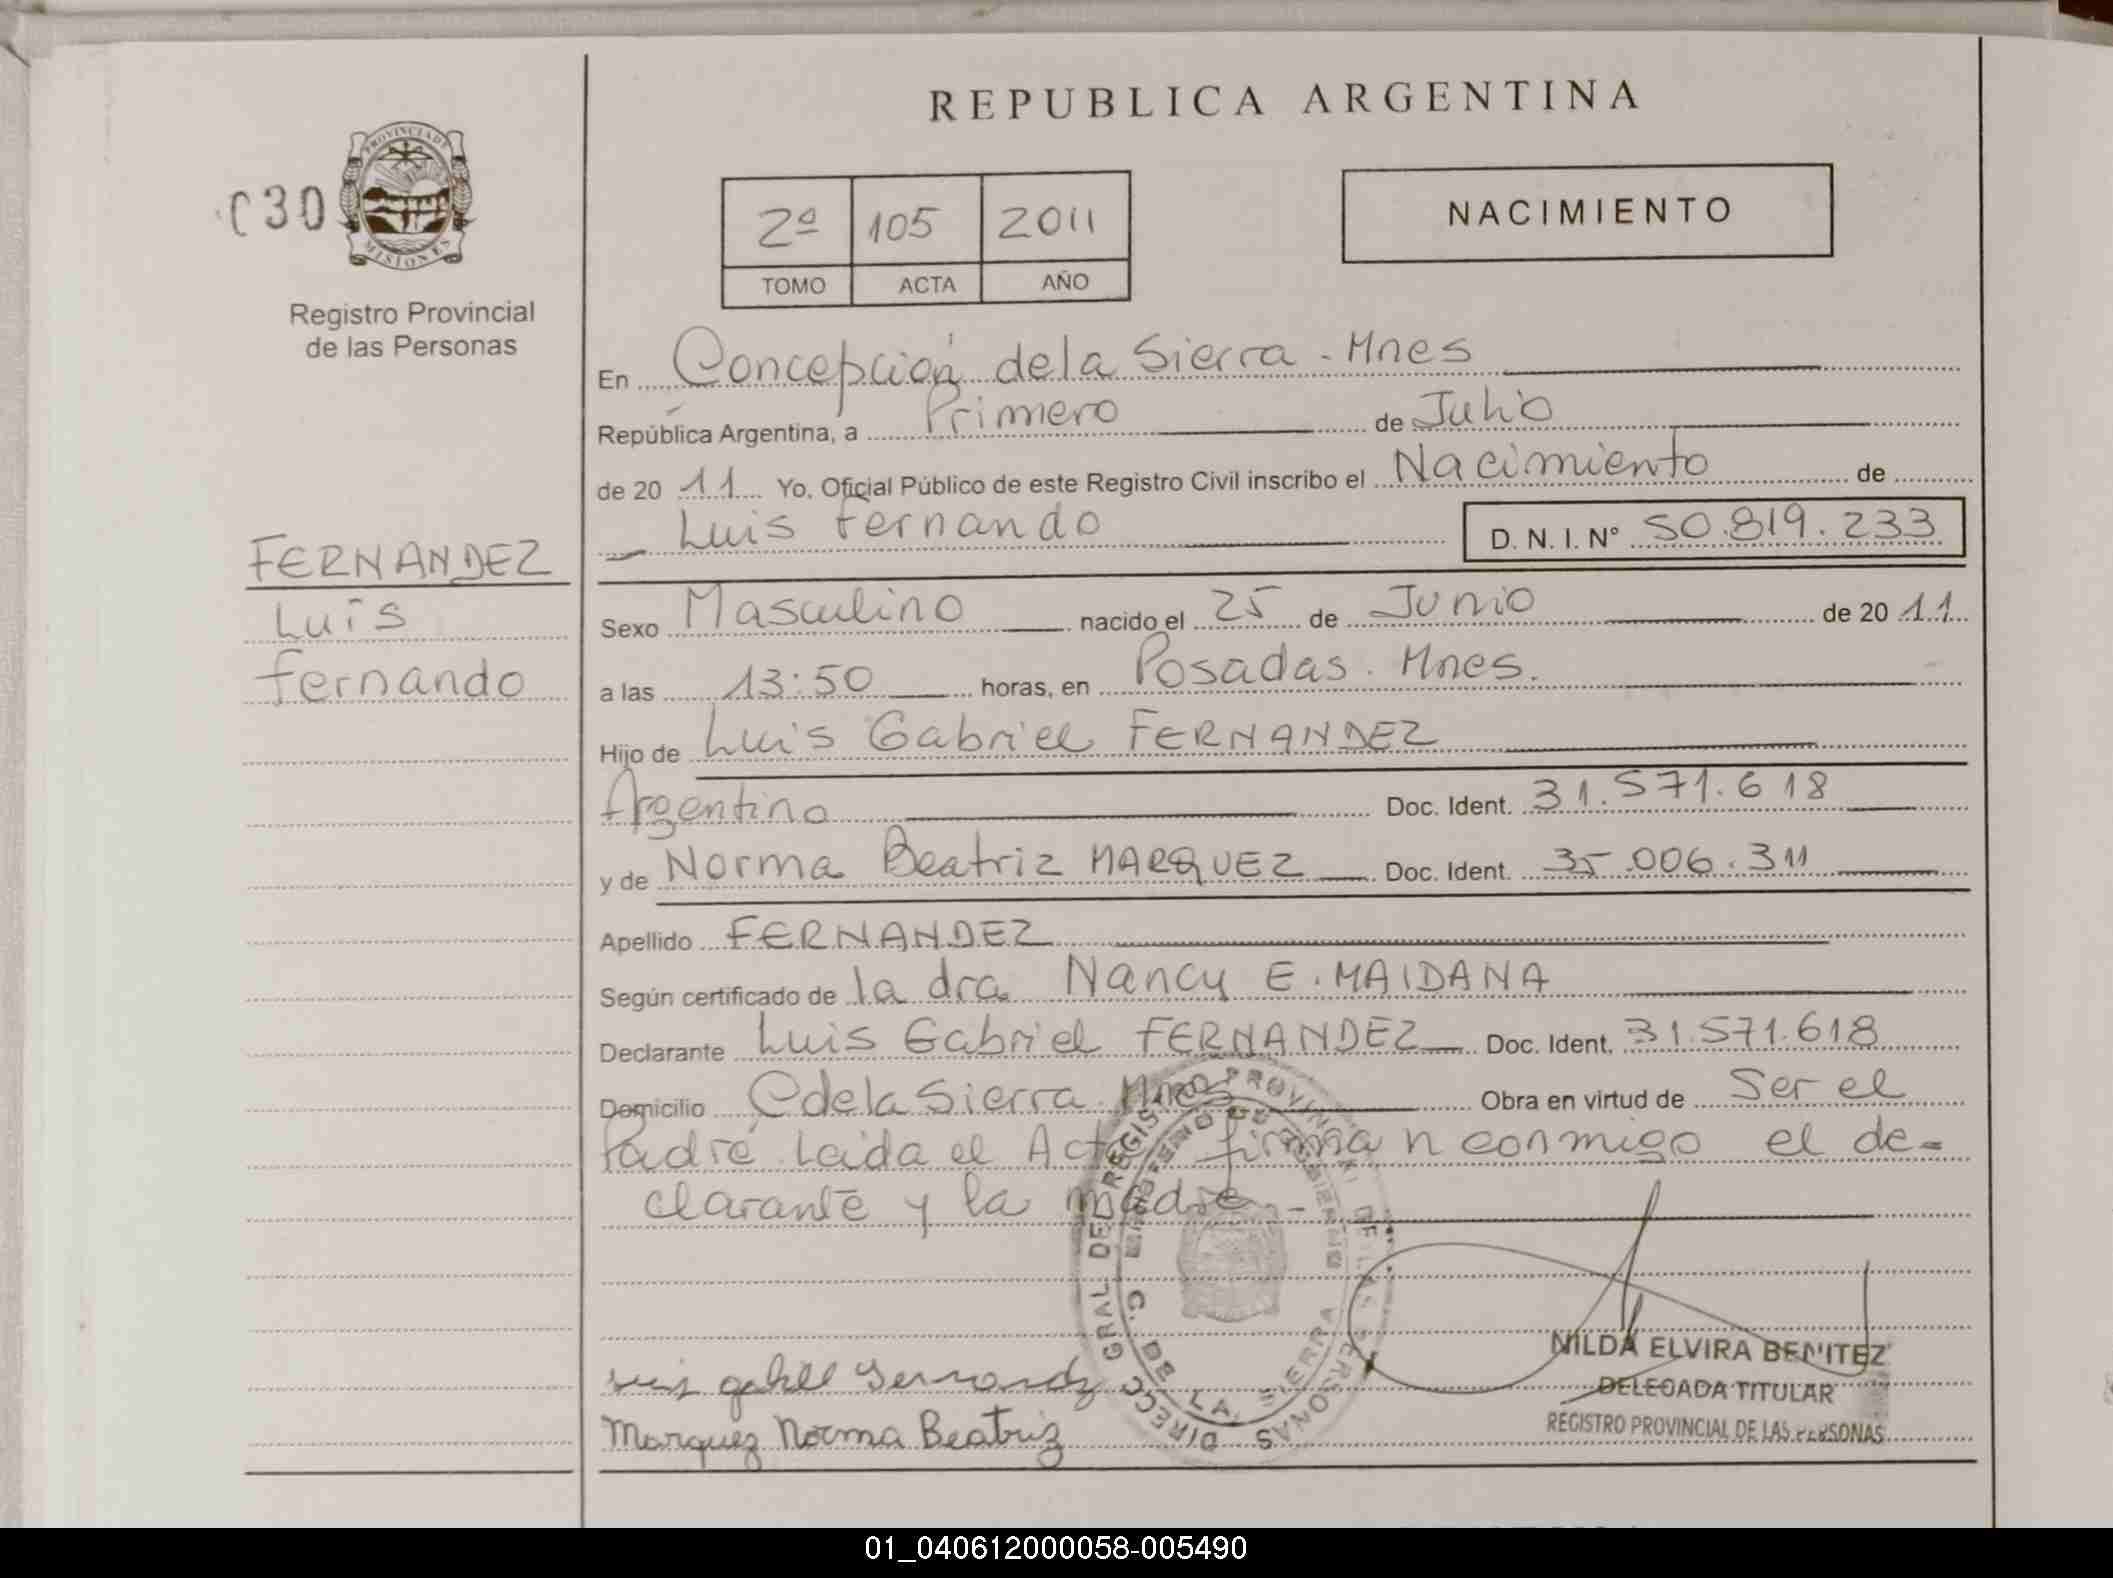 REPUBLICA ARGENTINA
030
PROVINCIA DE MISIONES
Registro Provincial
de las Personas
2ª 105 2011
TOMO ACTA AÑO
NACIMIENTO
En Concepción de la Sierra - Mnes
República Argentina, a Primero de Julio
de 2011 Yo, Oficial Público de este Registro Civil inscribo el Nacimiento de
Luis Fernando D. N. I. Nº 50.819.233
FERNANDEZ
Luis
Fernando
Sexo Masculino nacido el 25 de Junio de 2011
a las 13:50 horas, en Posadas. Mnes.
Hijo de Luis Gabriel FERNANDEZ
Argentino Doc. Ident. 31.571.618
y de Norma Beatriz MARQUEZ Doc. Ident. 35.006.311
Apellido FERNANDEZ
Según certificado de la dra. Nancy E. MAIDANA
Declarante Luis Gabriel FERNANDEZ Doc. Ident. 31.571.618
Domicilio C de la Sierra. Mnes Obra en virtud de Ser el
Padre. Leida el Acta firman conmigo el de=
clarante y la madre. -
DIRECC GRAL DE REGISTRO PROVINCIAL DE LAS PERSONAS
C. DE LA SIERRA
NILDA ELVIRA BENITEZ
DELEGADA TITULAR
REGISTRO PROVINCIAL DE LAS PERSONAS
Luis gabriel Fernandez
Marquez Norma Beatriz
01_040612000058-005490